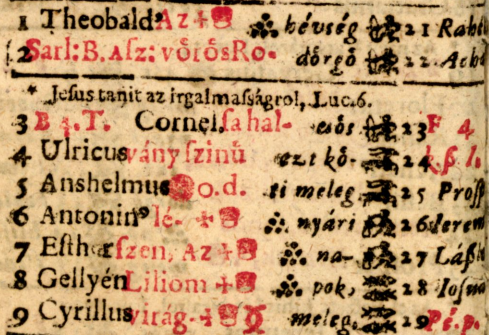 1 Theobald⁹ Az + hévség 21
2 Sarl: B. Asz: vörös Ro- dörgő 22
* Jesus tanit az irgalmasságrol, Luc. 6.
3 B 4. T. Cornel. sa hal- esős 23 F 4
4 Ulricus vány szinü ezt kö- 24
5 Anshelmus o. d. ti meleg 25
6 Antonin⁹ lé- + nyári 26
7 Esther szen, Az + na- 27
8 Gellyén Liliom + pok, 28
9 Cyrillus virág- + meleg, 29